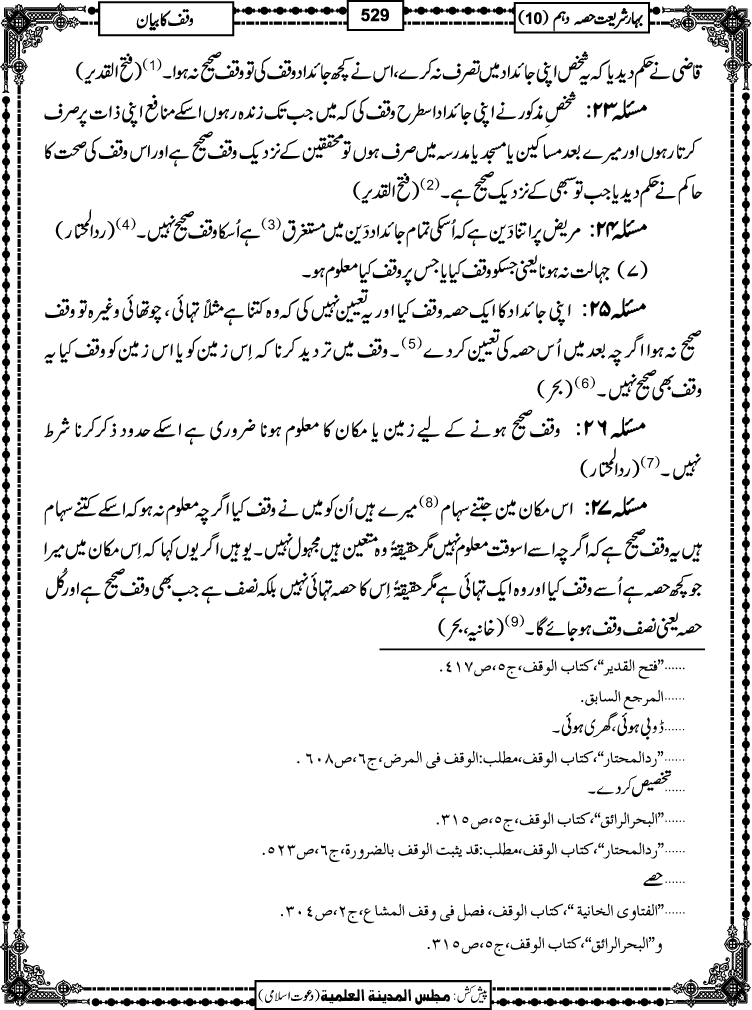 بہارِشریعت حصہ دہم (10)
529
وقف کا بیان
قاضی نے حکم دیدیا کہ یہ شخص اپنی جائداد میں تصرف نہ کرے، اس نے کچھ جائداد وقف کی تو وقف صحیح نہ ہوا۔(1) (فتح القدیر)
مسئلہ ۲۳: شخصِ مذکور نے اپنی جائداد اسطرح وقف کی کہ میں جب تک زندہ رہوں اسکے منافع اپنی ذات پر صرف
کرتا رہوں اور میرے بعد مساکین یا مسجد یا مدرسہ میں صرف ہوں تو محققین کے نزدیک وقف صحیح ہے اور اس وقف کی صحت کا
حاکم نے حکم دیدیا جب تو سبھی کے نزدیک صحیح ہے۔(2) (فتح القدیر)
مسئلہ ۲۴: مریض پر اتنا دَین ہے کہ اُسکی تمام جائداد دَین میں مستغرق(3) ہے اُسکا وقف صحیح نہیں۔(4) (ردالمحتار)
(۷) جہالت نہ ہونا یعنی جسکو وقف کیا یا جس پر وقف کیا معلوم ہو۔
مسئلہ ۲۵: اپنی جائداد کا ایک حصہ وقف کیا اور یہ تعیین نہیں کی کہ وہ کتنا ہے مثلاً تہائی، چوتھائی وغیرہ تو وقف
صحیح نہ ہوا اگر چہ بعد میں اُس حصہ کی تعیین کردے(5)۔ وقف میں تردید کرنا کہ اِس زمین کو یا اس زمین کو وقف کیا یہ
وقف بھی صحیح نہیں۔(6) (بحر)
مسئلہ ۲۶: وقف صحیح ہونے کے لیے زمین یا مکان کا معلوم ہونا ضروری ہے اسکے حدود ذکر کرنا شرط
نہیں۔(7) (ردالمحتار)
مسئلہ ۲۷: اس مکان مین جتنے سہام(8) میرے ہیں اُن کو میں نے وقف کیا اگرچہ معلوم نہ ہو کہ اسکے کتنے سہام
ہیں یہ وقف صحیح ہے کہ اگرچہ اسے اسوقت معلوم نہیں مگر حقیقۃً وہ متعین ہیں مجہول نہیں۔ یوہیں اگر یوں کہا کہ اِس مکان میں میرا
جو کچھ حصہ ہے اُسے وقف کیا اور وہ ایک تہائی ہے مگر حقیقۃً اِس کا حصہ تہائی نہیں بلکہ نصف ہے جب بھی وقف صحیح ہے اور کُل
حصہ یعنی نصف وقف ہو جائے گا۔(9) (خانیہ، بحر)
......”فتح القدیر“، کتاب الوقف، ج٥، ص٤١٧.
......المرجع السابق.
......ڈوبی ہوئی، گھری ہوئی۔
......”ردالمحتار“، کتاب الوقف، مطلب: الوقف فی المرض، ج٦، ص٦٠٨ .
......تخصیص کردے۔
......”البحرالرائق“، کتاب الوقف، ج٥، ص٣١٥.
......”ردالمحتار“، کتاب الوقف، مطلب: قد یثبت الوقف بالضرورة، ج٦، ص٥٢٣.
......حصے
......”الفتاوی الخانیة“، کتاب الوقف، فصل فی وقف المشاع، ج٢، ص٣٠٤.
و”البحرالرائق“، کتاب الوقف، ج٥، ص٣١٥.
پیش کش: مجلس المدینة العلمیة (دعوت اسلامی)